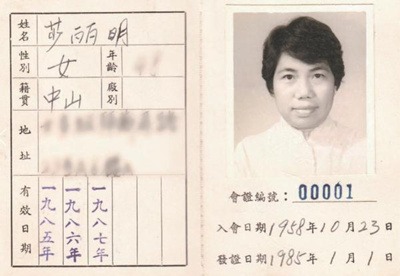 姓名 莎丽明
性別 女 年齡
籍貫 中山 廠別
地址
有效日期 一九八五年 一九八六年 一九八七年
會證編號：00001
入會日期1958年10月23日
發證日期1985年1月1日